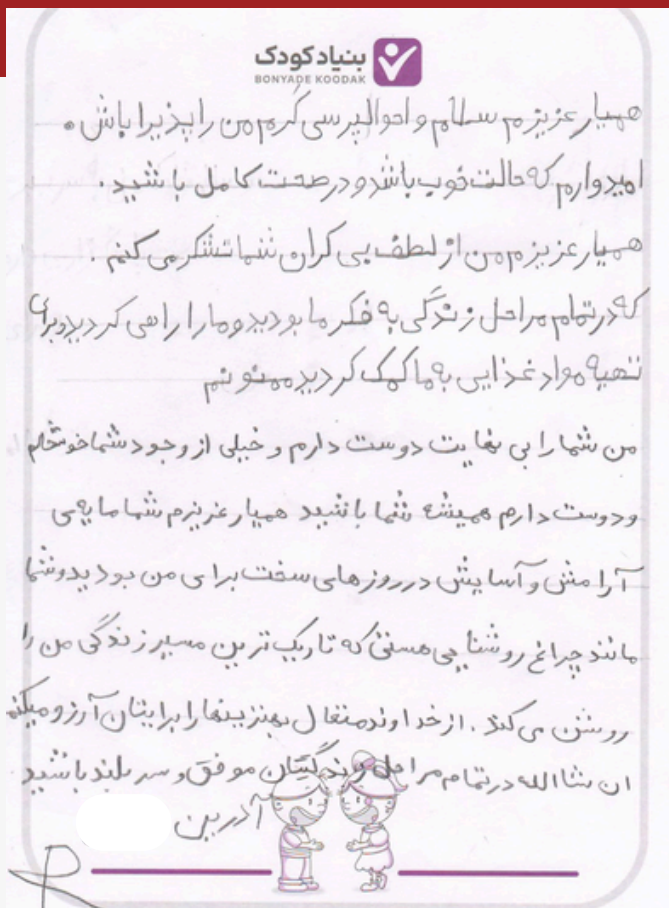 بنیاد کودک
BONYADE KOODAK
همیار عزیزم سلام و احوالپرسی گرم من را پذیرا باش.
امیدوارم که حالت خوب باشد و در صحت کامل باشید.
همیار عزیزم من از لطف بی کران شما تشکر می کنم.
که در تمام مراحل زندگی به فکر ما بودید و ما را راهی کردید و برای
تهیه مواد غذایی به ما کمک کردید ممنونم
من شما را بی نهایت دوست دارم و خیلی از وجود شما خوشحالم
و دوست دارم همیشه شما باشید همیار عزیزم شما مایه‌ی
آرامش و آسایش در روزهای سخت برای من بودید و شما
مانند چراغ روشنایی هستی که تاریک ترین مسیر زندگی من را
روشن می کند. از خداوند متعال بهترینها را برایتان آرزو میکنم
ان شاالله در تمام مراحل زندگیتان موفق و سربلند باشید
آدرین